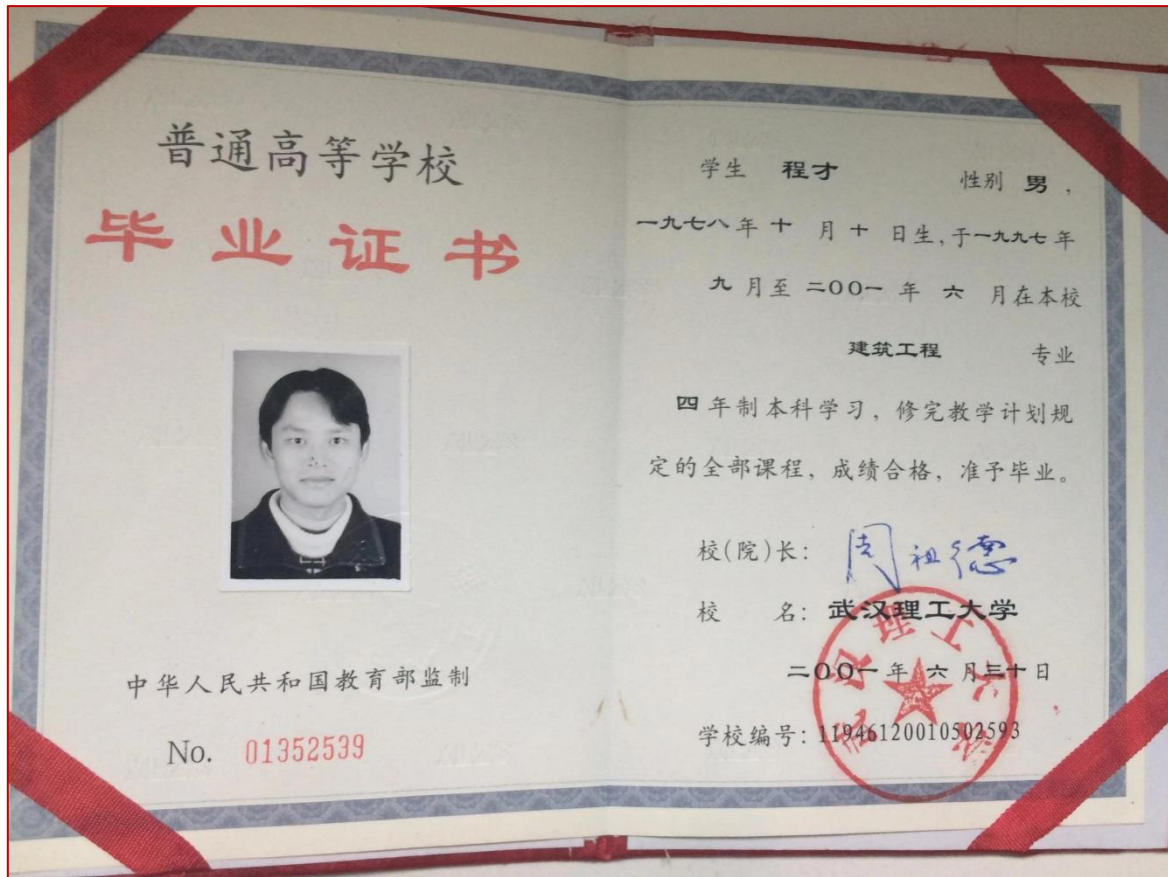 普通高等学校
毕业证书
中华人民共和国教育部监制
No. 01352539
学生 程才 性别 男，
一九七八年 十 月 十 日生，于一九九七年
九 月至 二〇〇一 年 六 月在本校
建筑工程 专业
四 年制本科学习，修完教学计划规
定的全部课程，成绩合格，准予毕业。
校(院)长：周祖德
校 名：武汉理工大学
二〇〇一年 六 月三十日
学校编号：11946120010502593
武汉理工大学